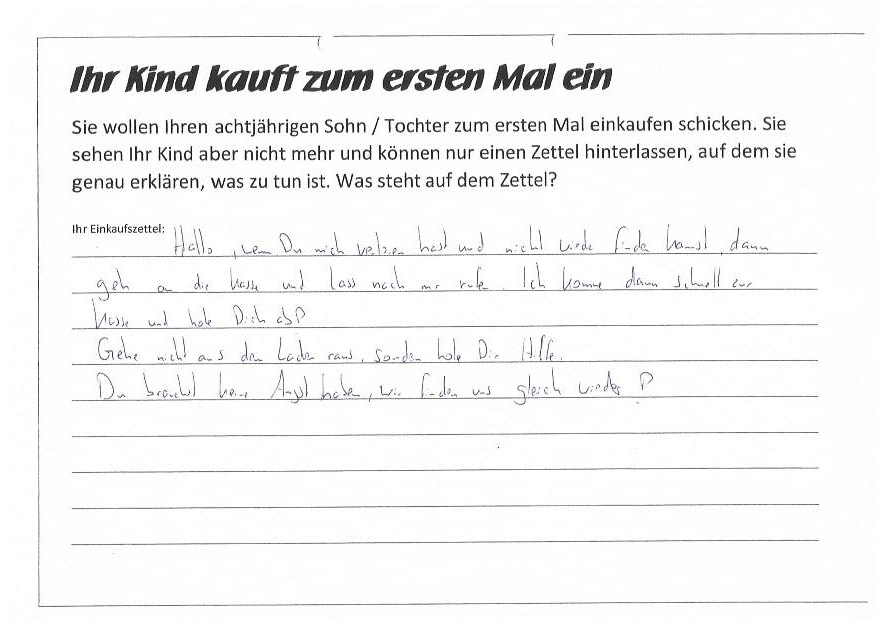 Ihr Kind kauft zum ersten Mal ein
Sie wollen Ihren achtjährigen Sohn / Tochter zum ersten Mal einkaufen schicken. Sie
sehen Ihr Kind aber nicht mehr und können nur einen Zettel hinterlassen, auf dem sie
genau erklären, was zu tun ist. Was steht auf dem Zettel?
Ihr Einkaufszettel: Hallo, wenn Du mich verloren hast und nicht wieder finden kannst, dann
geh an die Kasse und lass nach mir rufen. Ich komme dann schnell zur
Kasse und hole Dich ab!
Gehe nicht aus dem Laden raus, sondern hole Dir Hilfe.
Du brauchst keine Angst haben, wir finden uns gleich wieder!